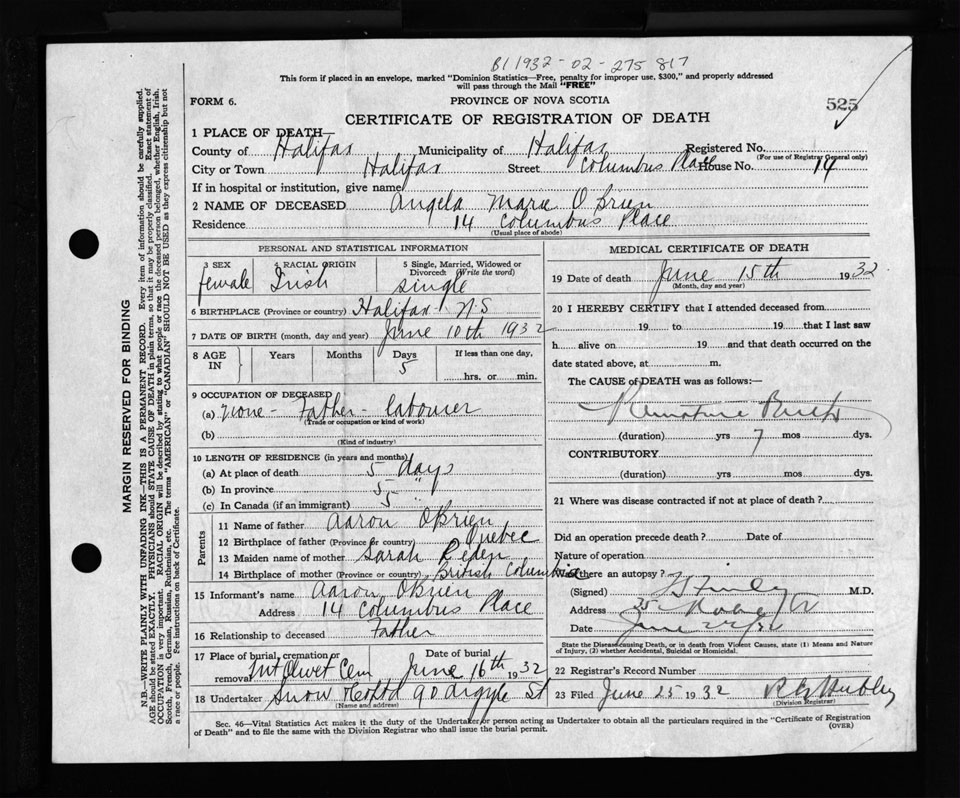 B1 1932-02-275 817
This form if placed in an envelope, marked "Dominion Statistics—Free, penalty for improper use, $300," and properly addressed
will pass through the Mail "FREE"
FORM 6.
PROVINCE OF NOVA SCOTIA
525
CERTIFICATE OF REGISTRATION OF DEATH
1 PLACE OF DEATH—
County of Halifax Municipality of Halifax Registered No.
(For use of Registrar General only)
City or Town Halifax Street Columbus Place House No. 14
If in hospital or institution, give name
2 NAME OF DECEASED Angela Marie O'Brien
Residence 14 Columbus Place
(Usual place of abode)
PERSONAL AND STATISTICAL INFORMATION
3 SEX
female
4 RACIAL ORIGIN
Irish
5 Single, Married, Widowed or
Divorced: (Write the word)
single
6 BIRTHPLACE (Province or country) Halifax N S
7 DATE OF BIRTH (month, day and year) June 10th 1932
8 AGE
IN
Years
Months
Days
5
If less than one day,
hrs. or min.
9 OCCUPATION OF DECEASED
(a) none - Father - labourer
(Trade or occupation or kind of work)
(b)
(Kind of industry)
10 LENGTH OF RESIDENCE (in years and months)
(a) At place of death 5 days
(b) In province 5 "
(c) In Canada (if an immigrant) 5 "
Parents
11 Name of father Aaron O'Brien
12 Birthplace of father (Province or country) Quebec
13 Maiden name of mother Sarah Reden
14 Birthplace of mother (Province or country) British Columbia
15 Informant's name Aaron O'Brien
Address 14 Columbus Place
16 Relationship to deceased Father
17 Place of burial, cremation or
removal Mt Olivet Cem
Date of burial
June 16th 1932
18 Undertaker Snow & Co Ltd 90 Argyle St
(Name and address)
MEDICAL CERTIFICATE OF DEATH
19 Date of death June 15th 1932
(Month, day and year)
20 I HEREBY CERTIFY that I attended deceased from
19 to 19 that I last saw
h alive on 19 and that death occurred on the
date stated above, at m.
The CAUSE of DEATH was as follows:—
Premature Birth
(duration) yrs 7 mos dys.
CONTRIBUTORY
(duration) yrs mos dys.
21 Where was disease contracted if not at place of death?
Did an operation precede death? Date of
Nature of operation
Was there an autopsy?
(Signed) M.D.
Address 35
Date June
State the Disease causing Death, or in death from Violent Causes, state (1) Means and Nature
of Injury, (2) whether Accidental, Suicidal or Homicidal.
22 Registrar's Record Number
23 Filed June 25 1932
(Division Registrar)
Sec. 46—Vital Statistics Act makes it the duty of the Undertaker or person acting as Undertaker to obtain all the particulars required in the "Certificate of Registration
of Death" and to file the same with the Division Registrar who shall issue the burial permit.
(OVER)
MARGIN RESERVED FOR BINDING
N.B.—WRITE PLAINLY WITH UNFADING INK—THIS IS A PERMANENT RECORD. Every item of information should be carefully supplied.
AGE should be stated EXACTLY. PHYSICIANS should STATE CAUSE OF DEATH in plain terms, so that it may be properly classified. Exact statement of
OCCUPATION is very important. RACIAL ORIGIN will be described by stating to what people or race the deceased person belonged, whether English, Irish,
Scotch, French, German, Russian, Ruthenian, etc. The terms "AMERICAN" or "CANADIAN" SHOULD NOT BE USED as they express citizenship but not
a race or people. Fee instructions on back of Certificate.